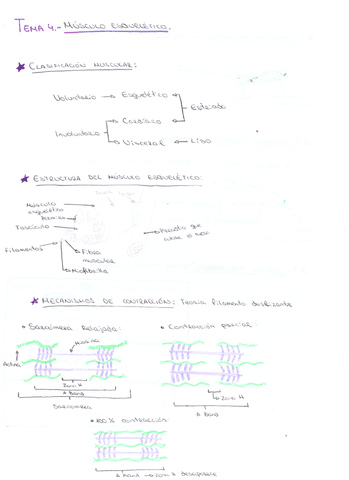 TEMA 4.- MÚSCULO ESQUELÉTICO.
★ CLASIFICACIÓN MUSCULAR:
Voluntario → Esquelético
Estriado
Involuntario → Cardiaco
Visceral ← Liso
★ ESTRUCTURA DEL MÚSCULO ESQUELÉTICO:
Músculo
esquelético
Fascículo
Filamentos
Fibra
muscular
Miofibrilla
★ MECANISMOS DE CONTRACCIÓN: Teoría filamento deslizante
• Sarcómera Relajada:
• Contracción parcial:
Miosina
Actina
Zona H
A band
Sarcómera
Zona H
A band
• 100% contracción:
A band → zona H desaparece